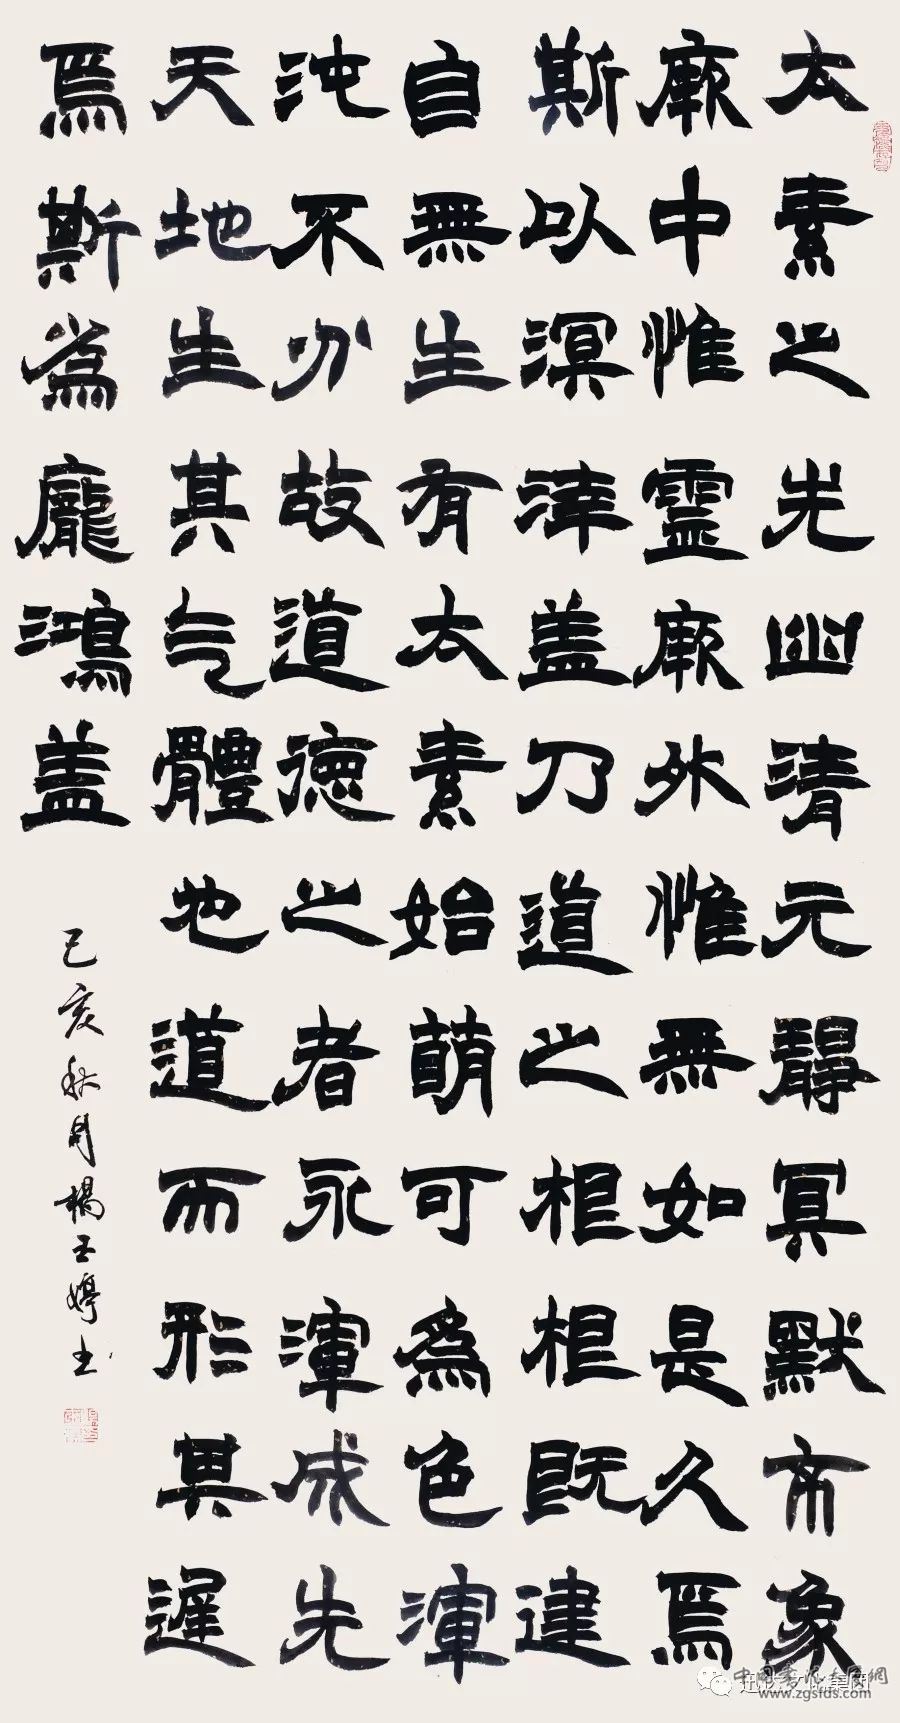 太素之先幽清元靜冥默象
厥中惟靈厥外惟無如是久焉
斯以溟涬盖乃道之根根既建
自無生有太素始萌可為色渾
沌不分故道德之者永渾成先
天地生其气體也道而形其遲
焉斯為龐鴻盖
己亥秋月楊玉婷书
www.zgsfds.com